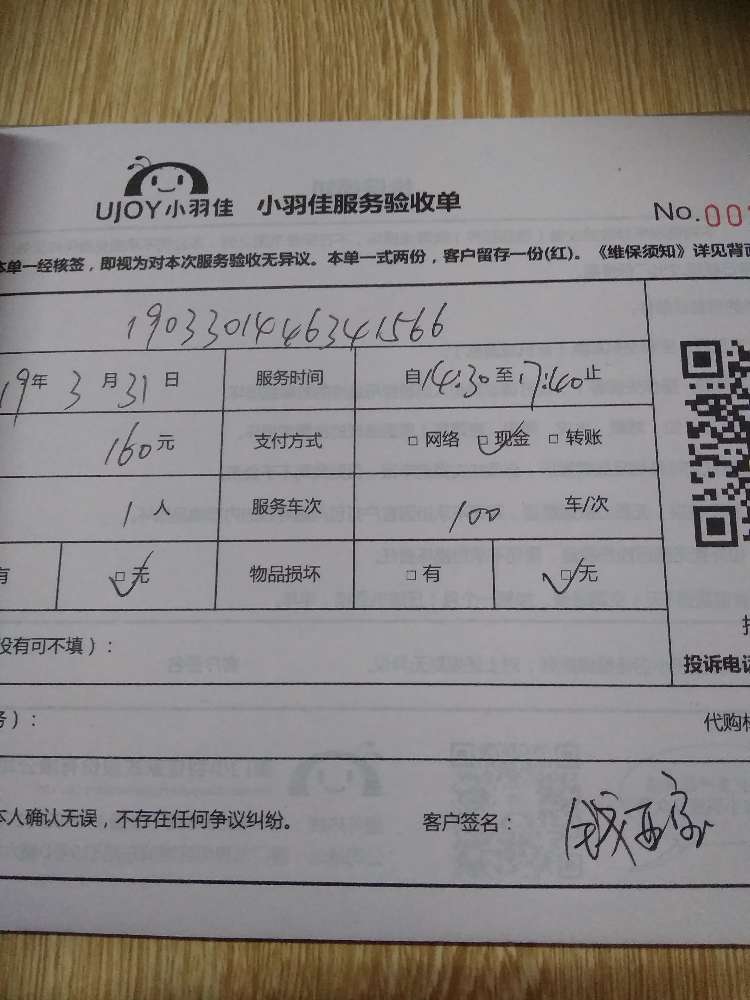 UJOY小羽佳 小羽佳服务验收单
No.00
本单一经核签，即视为对本次服务验收无异议。本单一式两份，客户留存一份(红)。《维保须知》详见背面
1903301446341566
19年 3 月 31 日 服务时间 自14:30至17:40止
160元 支付方式 □ 网络 □ 现金 □ 转账
1 人 服务车次 100 车/次
有 □ 无 物品损坏 □ 有 □ 无
没有可不填）：
投诉电话
务）： 代购
本人确认无误，不存在任何争议纠纷。 客户签名：